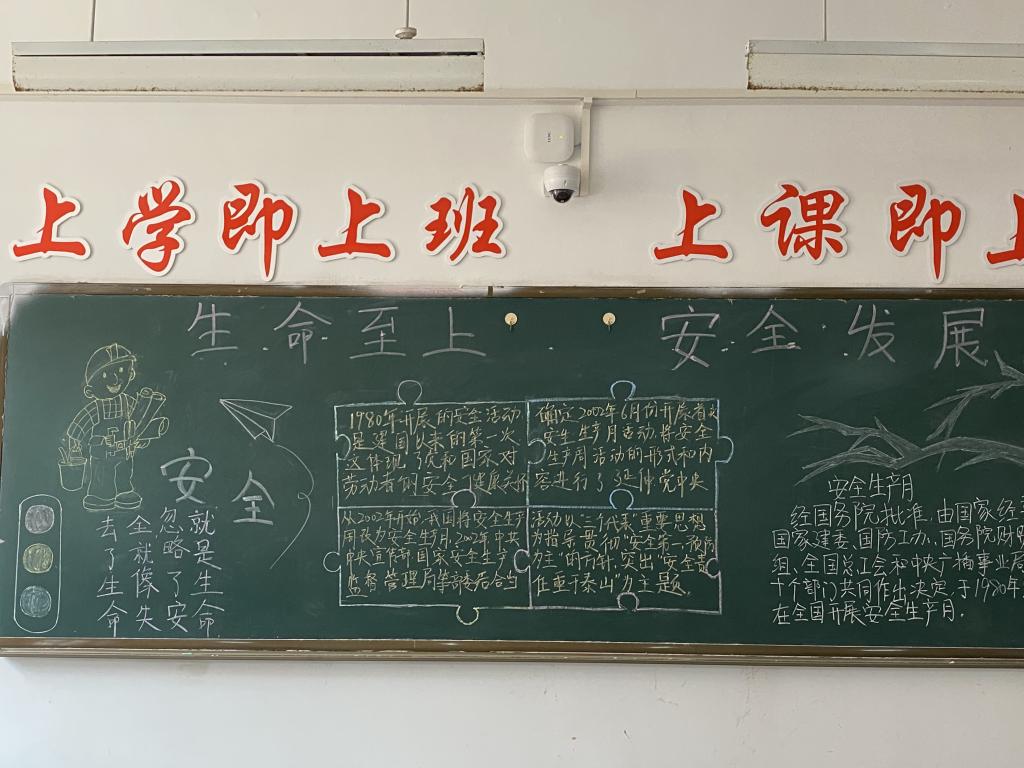 上学即上班
上课即上
生命至上
安全发展
安全
就是生命
忽略了安
全就像失
去了生命
1980年开展的安全活动
是建国以来的第一次
这体现了党和国家对
劳动者的安全健康关怀
确定2002年6月份开展首次
安全生产月活动,将安全
生产周活动的形式和内
容进行了延伸党中央
从2002年开始,我国将安全生产
周改为安全生产月,2002年中共
中央宣传部国家安全生产
监督管理局等部委结合当
活动以"三个代表"重要思想
为指导贯彻"安全第一,预防
为主"的方针,突出"安全责
任重于泰山"为主题.
安全生产月
经国务院批准,由国家经
国家建委、国防工办、国务院财贸
组、全国总工会和中央广播事业局
十个部门共同作出决定,于1980年
在全国开展安全生产月.